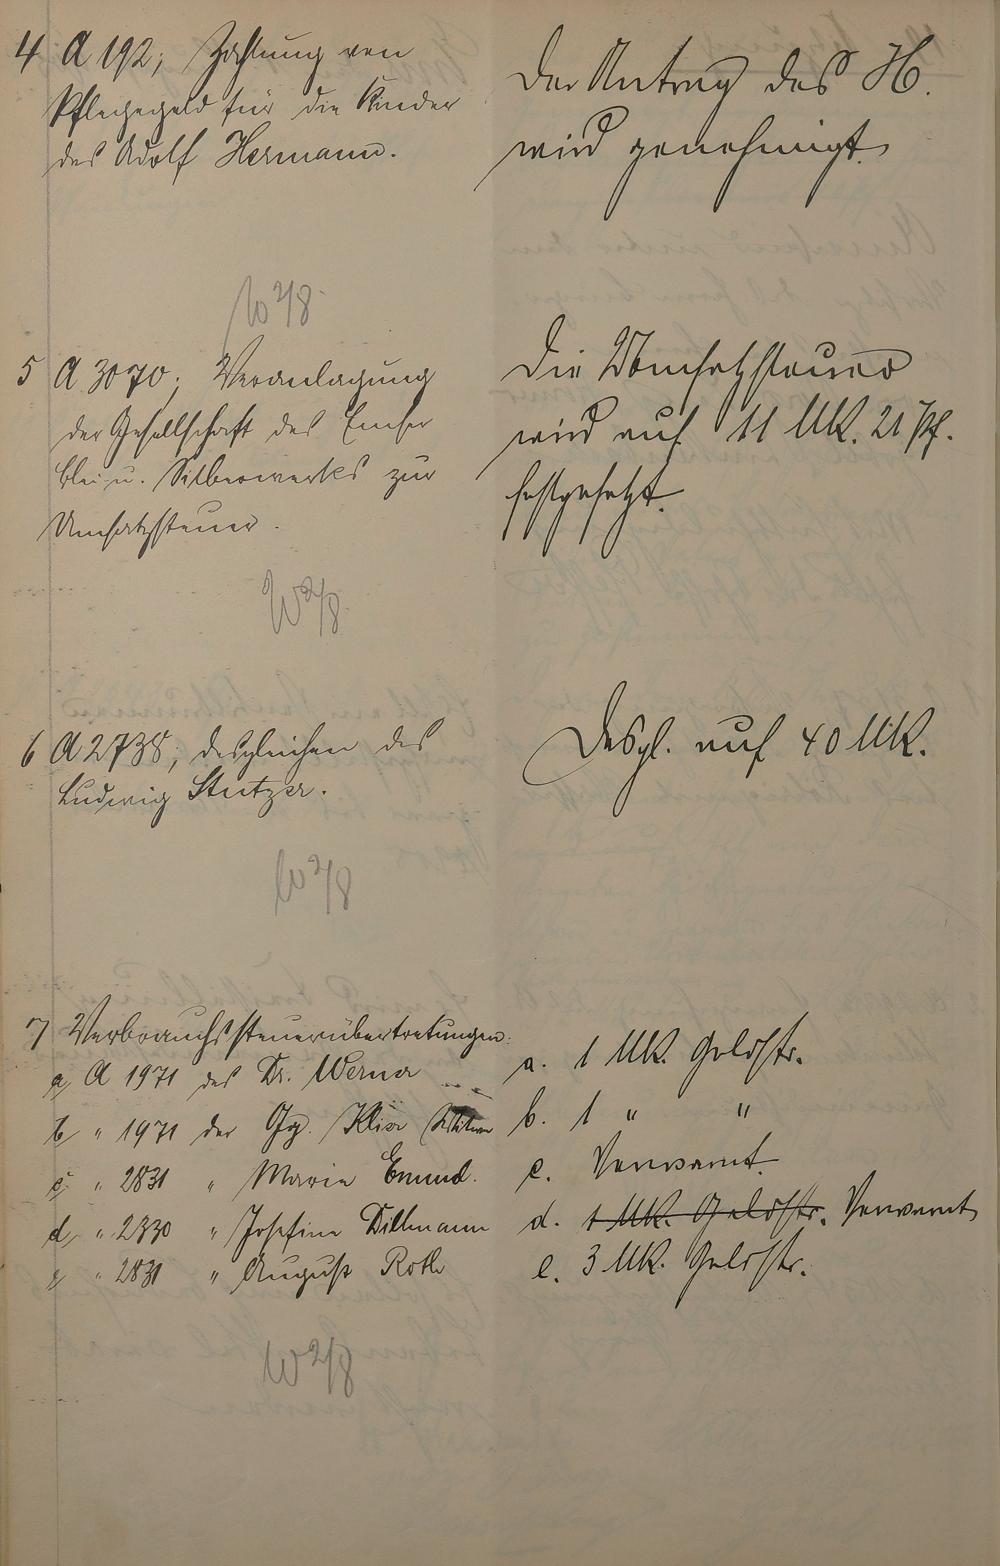 4 A 192; Zahlung von
Pflegegeld für die Kinder
des Adolf Hermann.
Der Antrag des H.
wird genehmigt.
W 2/8
5 A 3070; Veranlagung
der Gesellschaft des Emser
Blei- u. Silberwerks zur
Umsatzsteuer.
Die Umsatzsteuer
wird auf 11 Mk. 21 Pf.
festgesetzt.
W 2/8
6 A 2738; desgleichen des
Ludwig Stutzer.
Desgl. auf 40 Mk.
W 2/8
7 Verbrauchssteuerübertretungen:
a, A 1971 des Dr. Werner
a. 1 Mk. Geldstr.
b " 1971 der Gg. Klier
b. 1 " "
c, " 2831 " Marie Emmel.
c. Verwarnt.
d, " 2330 " Josefine Dillmann
d. 1 Mk. Geldstr. Verwarnt
e " 2831 " August Roth
e. 3 Mk. Geldstr.
W 2/8